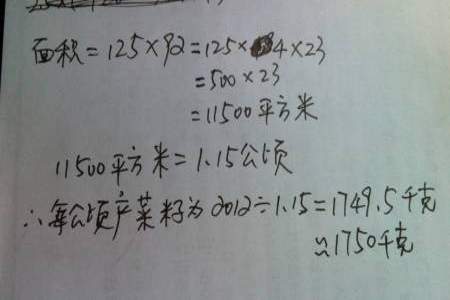 面积=125×92=125×4×23
=500×23
=11500平方米
11500平方米=1.15公顷
∴每公顷产菜籽为2012÷1.15=1749.5千克
≈1750千克